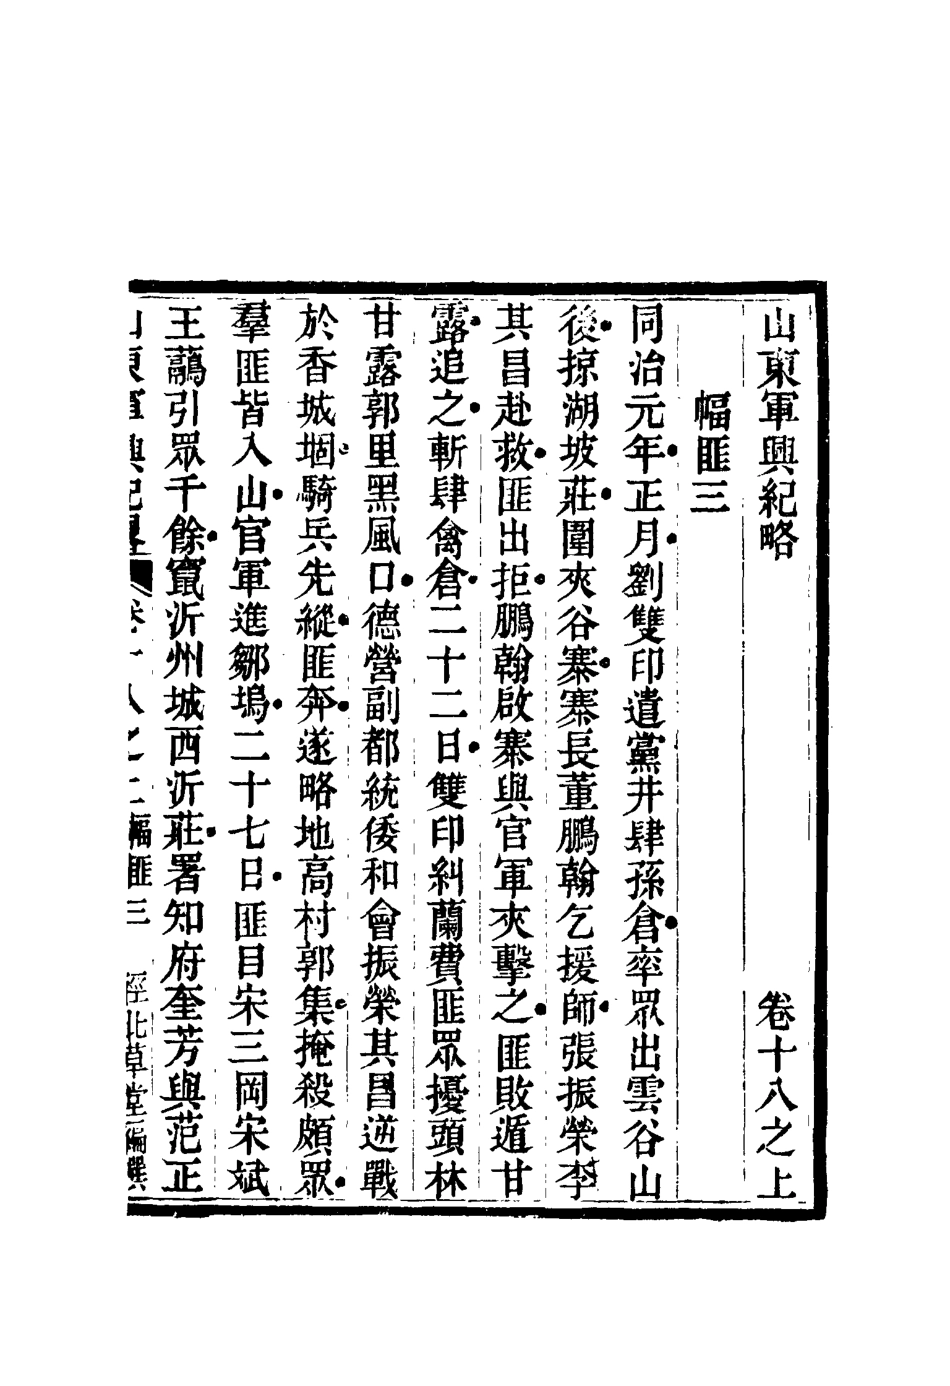 山東軍興紀略 卷十八之上
幅匪三
同治元年正月劉雙印遺黨井肆孫倉率眾出雲谷山
後掠湖坡莊圍夾谷寨寨長董鵬翰乞援師張振榮李
其昌赴救匪出拒鵬翰啟寨與官軍夾擊之匪敗遁甘
露追之斬肆禽倉二十二日雙印糾蘭費匪眾擾頭林
甘露郭里黑風口德營副都統倭和會振榮其昌逆戰
於香城堌騎兵先縱匪奔遂略地高村郭集掩殺頗眾
羣匪皆入山官軍進鄒塢二十七日匪目宋三岡宋斌
王虉引眾千餘竄沂州城西沂莊署知府奎芳與范正
山東軍興紀略 卷十八之上 幅匪三 堂編撰